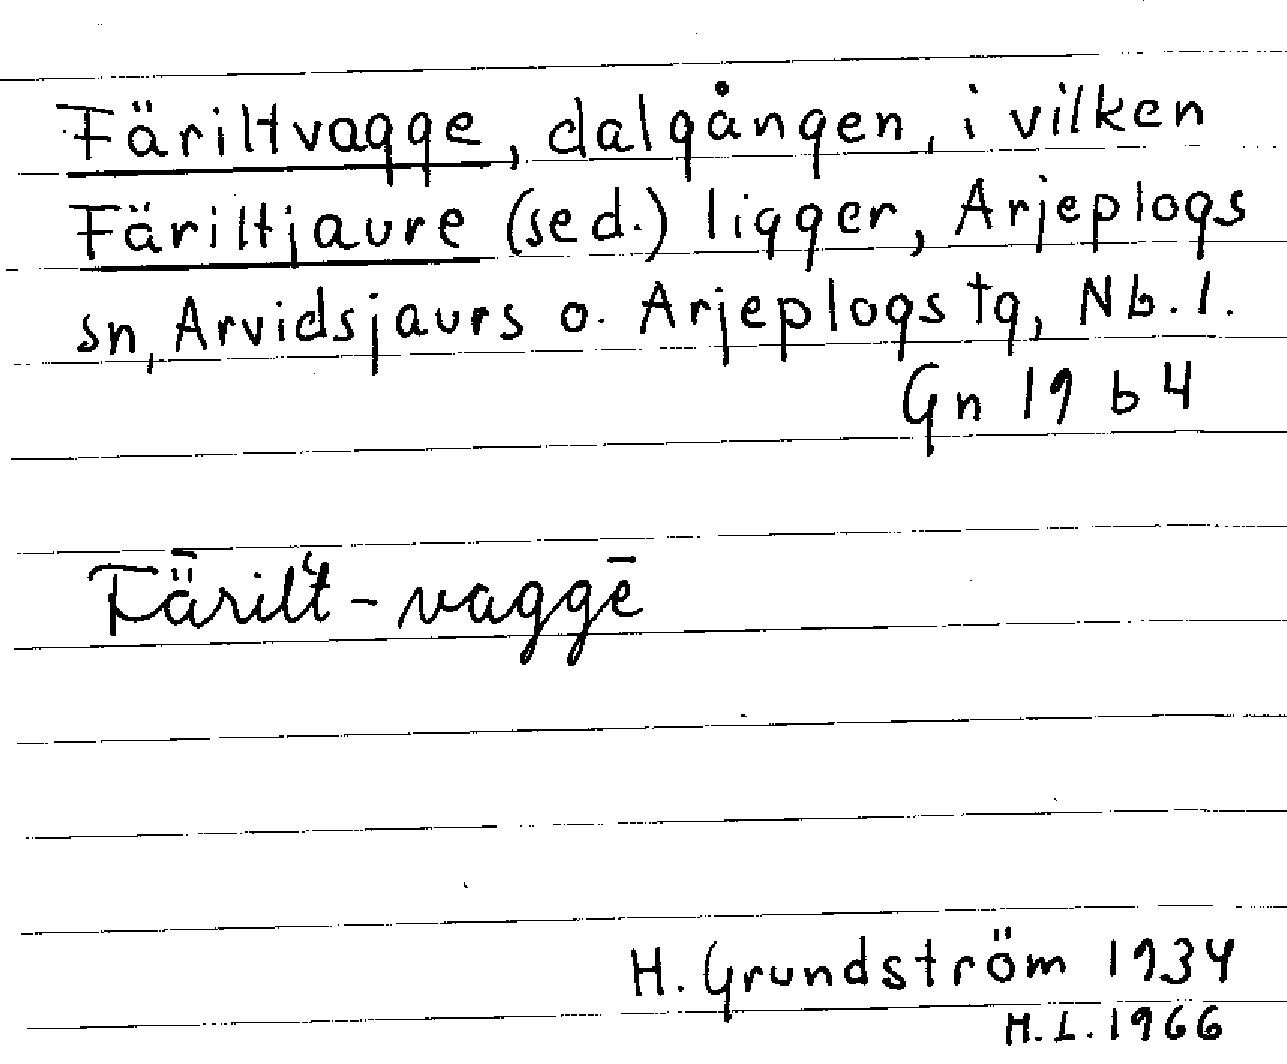 Färiltvagge, dalgången, i vilken
Färiltjaure (se d.) ligger, Arjeplogs
sn, Arvidsjaurs o. Arjeplogs tg, Nb. l.
Gn 19 b 4
Fǟrilt̔-vaggē
H. Grundström 1934
H.L. 1966